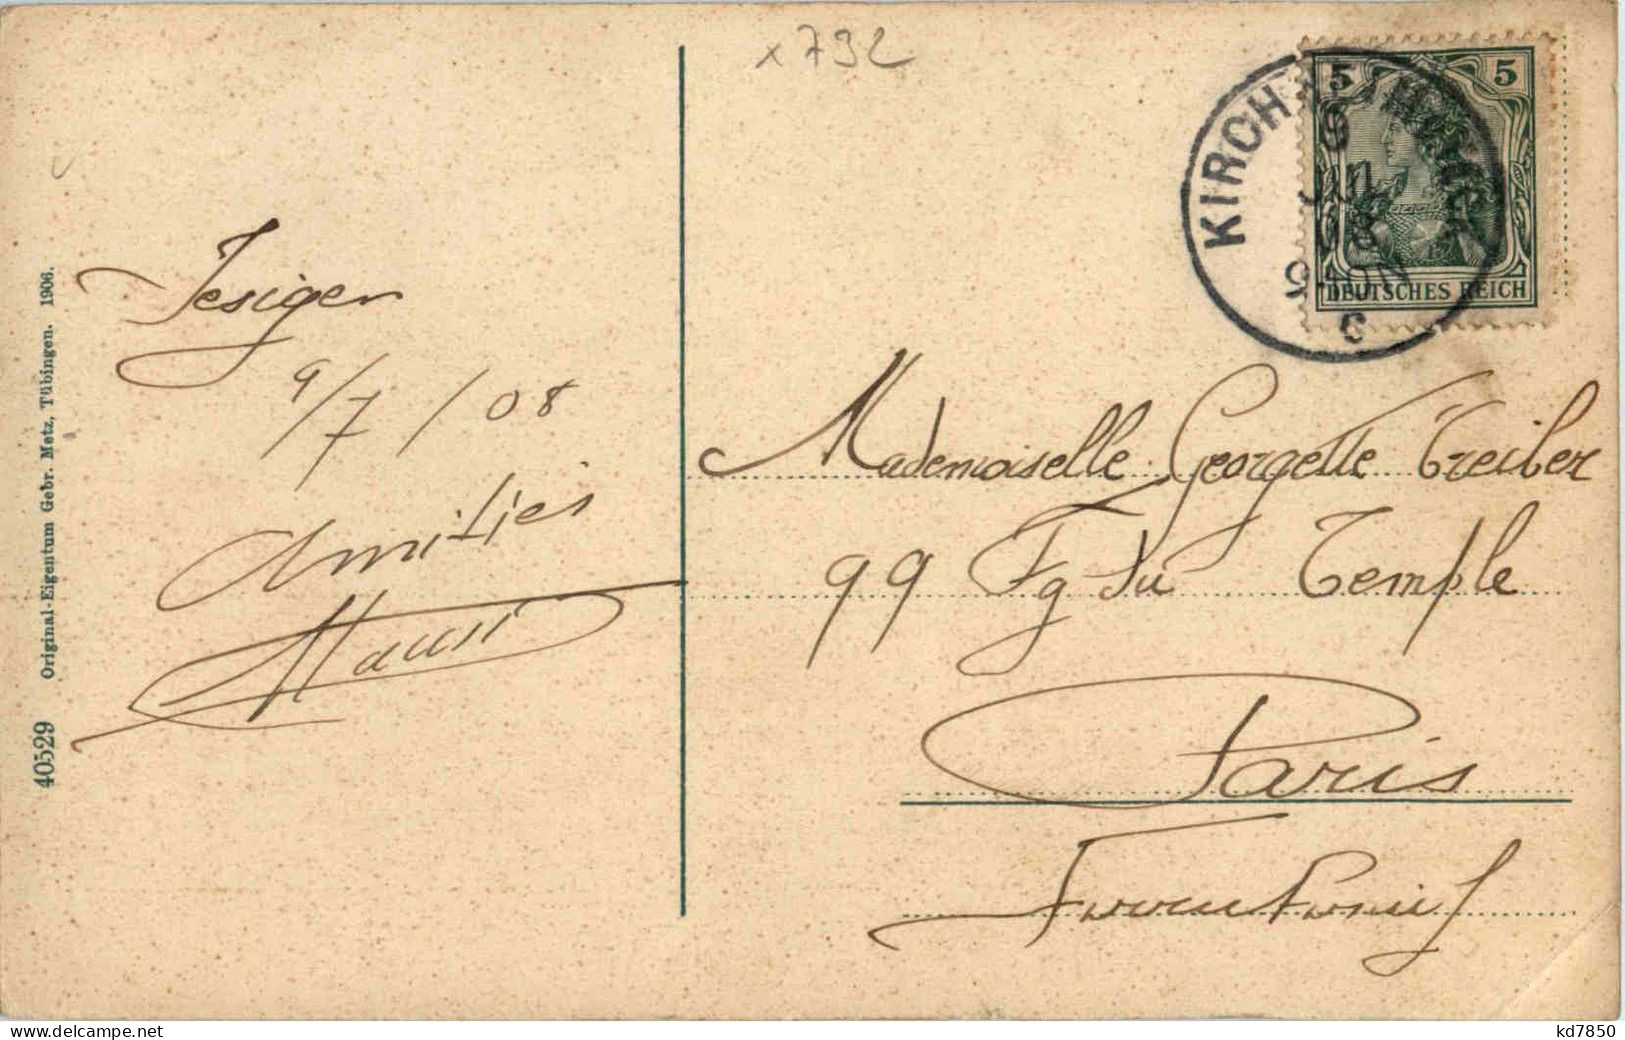 x 792
5 5
DEUTSCHES REICH
KIRCH
9
9-10N
c
Jesigen
9/7/08
Amitiés
Mademoiselle Georgette Treiber
99 Fg du Temple
Paris
40529 Original-Eigentum Gebr. Metz, Tübingen. 1906.
www.delcampe.net
kd7850